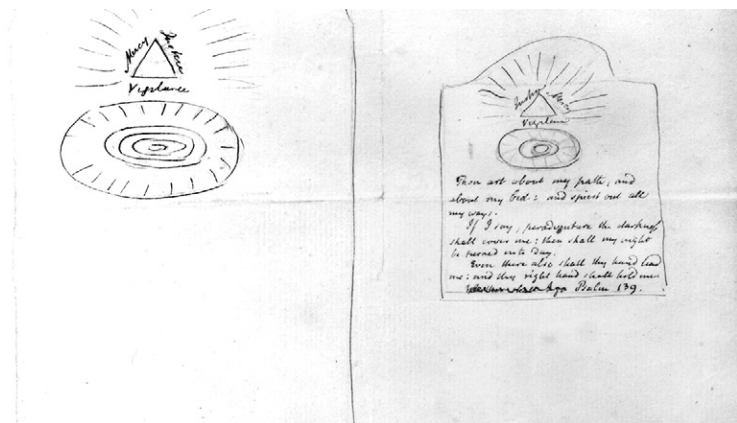 Mercy Justice
Vigilance
Justice Mercy
Vigilance
Thou art about my path, and
about my bed: and spiest out all
my ways.
If I say, peradventure the darkness
shall cover me: then shall my night
be turned into day.
Even there also shall thy hand lead
me: and thy right hand shall hold me
Psalm 139.